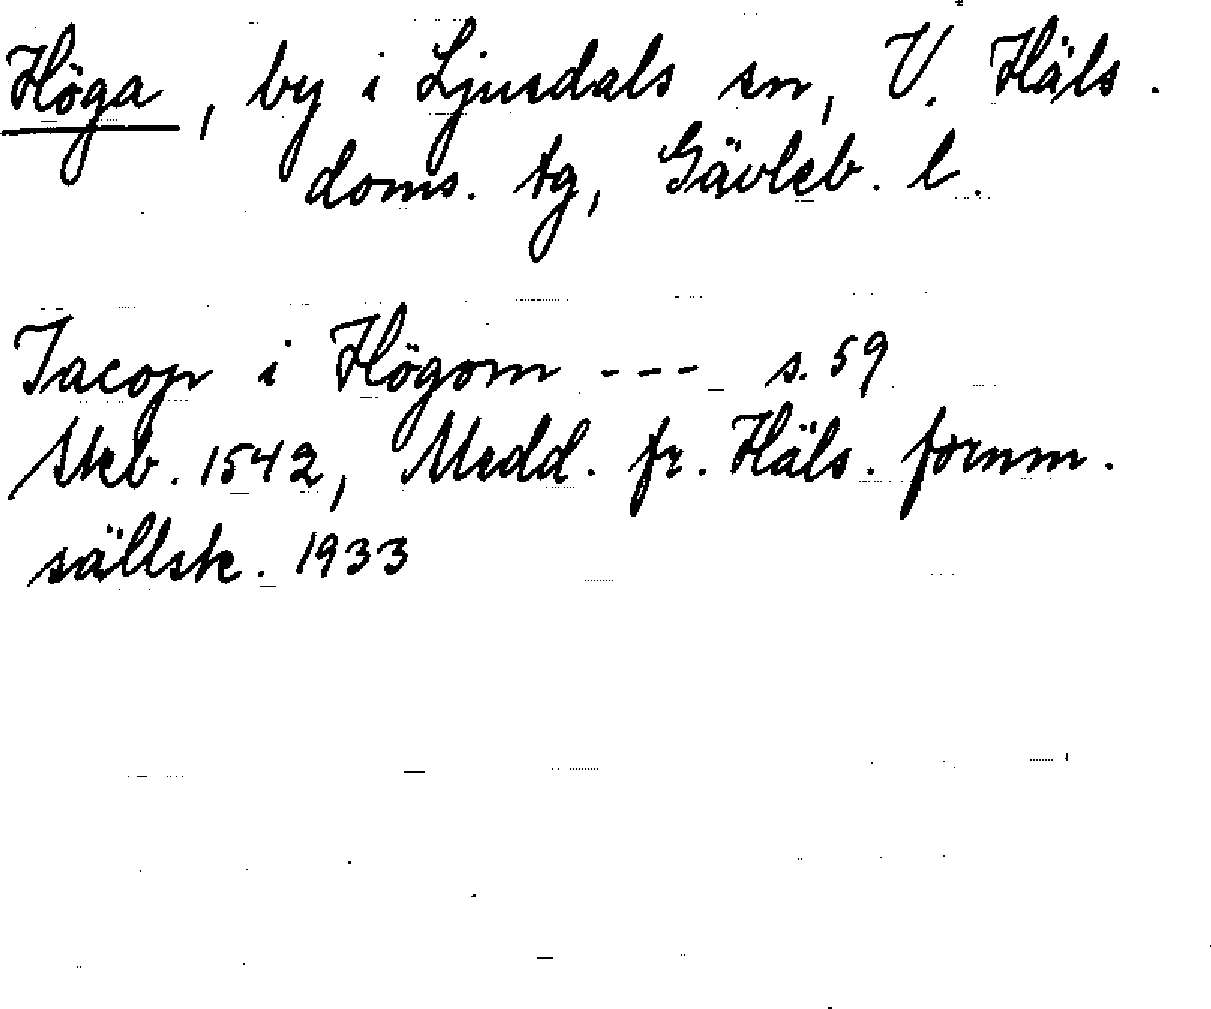 Höga, by i Ljusdals sn, V. Häls.
doms. tg, Gävleb. l.
Jacop i Högom --- s. 59
Skb. 1542, Medd. fr. Häls. fornm.
sällsk. 1933